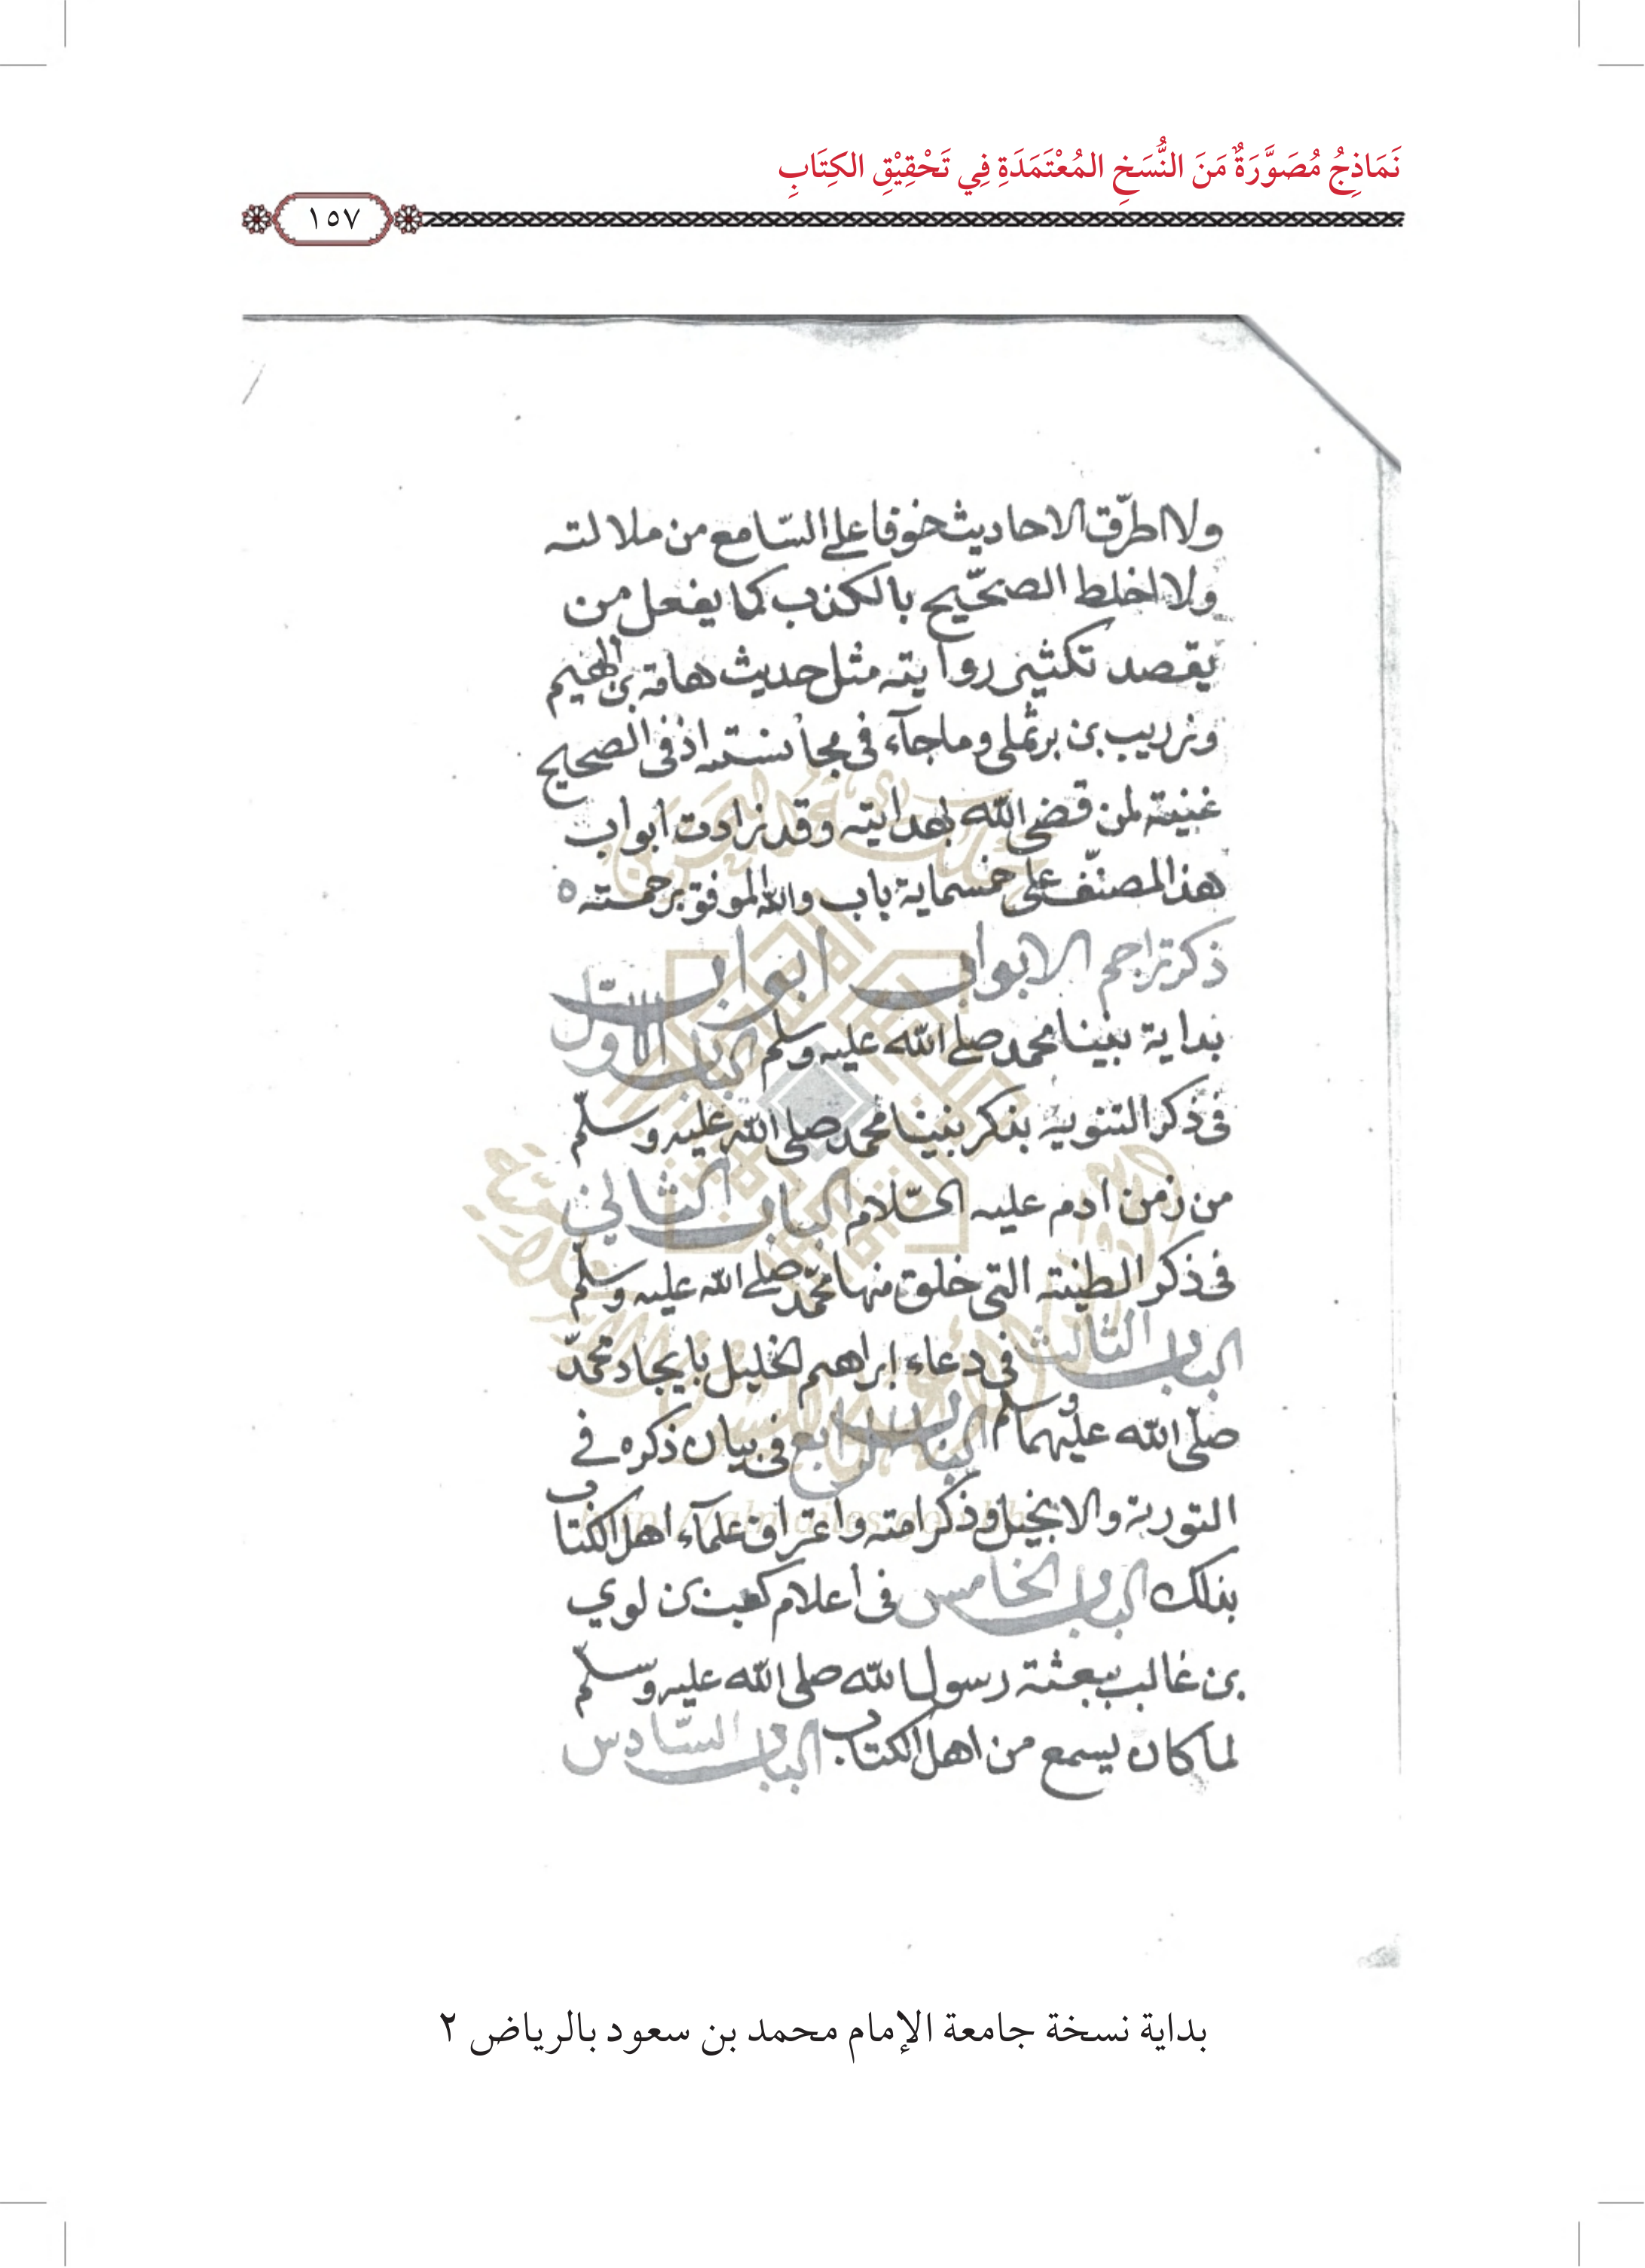 نَمَاذِجُ مُصَوَّرَةٌ مَنَ النُّسَخِ المُعْتَمَدَةِ فِي تَحْقِيْقِ الكِتَابِ
١٥٧
ولا اطرّق الاحاديث خوفا على السّامع من ملالته
ولا اخلط الصحّيح بالكذب كما يفعل من
يقصد تكثير روايته مثل حديث هامة بن الهيم
وزريب بن برثملى وما جآء فى مجانسته اذ فى الصحيح
غنية لمن قضى الله بهدايته وقد زادت ابواب
هذا المصنّف على خمسماية باب والله الموفق برحمته ٥
ذكر تراجم الابواب ابواب
بداية نبينا محمد صلى الله عليه وسلم الباب الاول
فى ذكر التنويه بذكر نبينا محمد صلى الله عليه وسلّم
من زمن ادم عليه السّلام الباب الثانى
فى ذكر الطينة التى خلق منها محمّد صلى الله عليه وسلّم
الباب الثالث فى دعاء إبراهيم الخليل بايجاد محمّد
صلّى الله عليهما وسلم الباب الرابع فى بيان ذكره فى
التورية والانجيل وذكر امته واعتراف علمآء اهل الكتاب
بذلك الباب الخامس فى أعلام كعب بن لوي
بن غالب ببعثة رسول الله صلى الله عليه وسلّم
لما كان يسمع من اهل الكتاب الباب السّادس
بداية نسخة جامعة الإمام محمد بن سعود بالرياض ٢